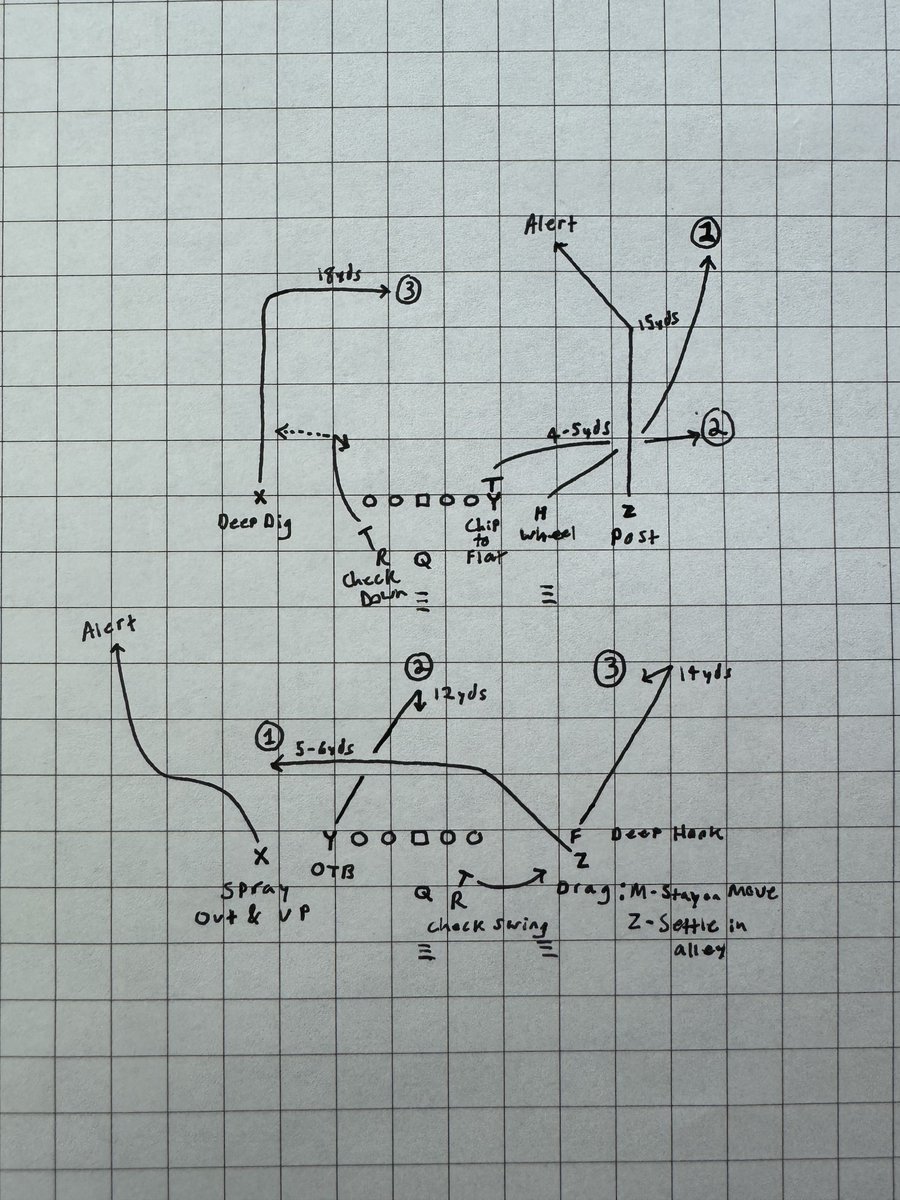 Alert
①
18yds
③
15yds
4-5yds
②
X
Y
H
Z
Deep Dig
Chip
to
Flat
Wheel
Post
R
Q
Check
Down
Alert
②
12yds
③
14yds
①
5-6yds
X
Y
F
Z
OTB
Deep Hook
Spray
Out & UP
Q
R
Check Swing
Drag: M-Stay on Move
Z-Settle in
alley